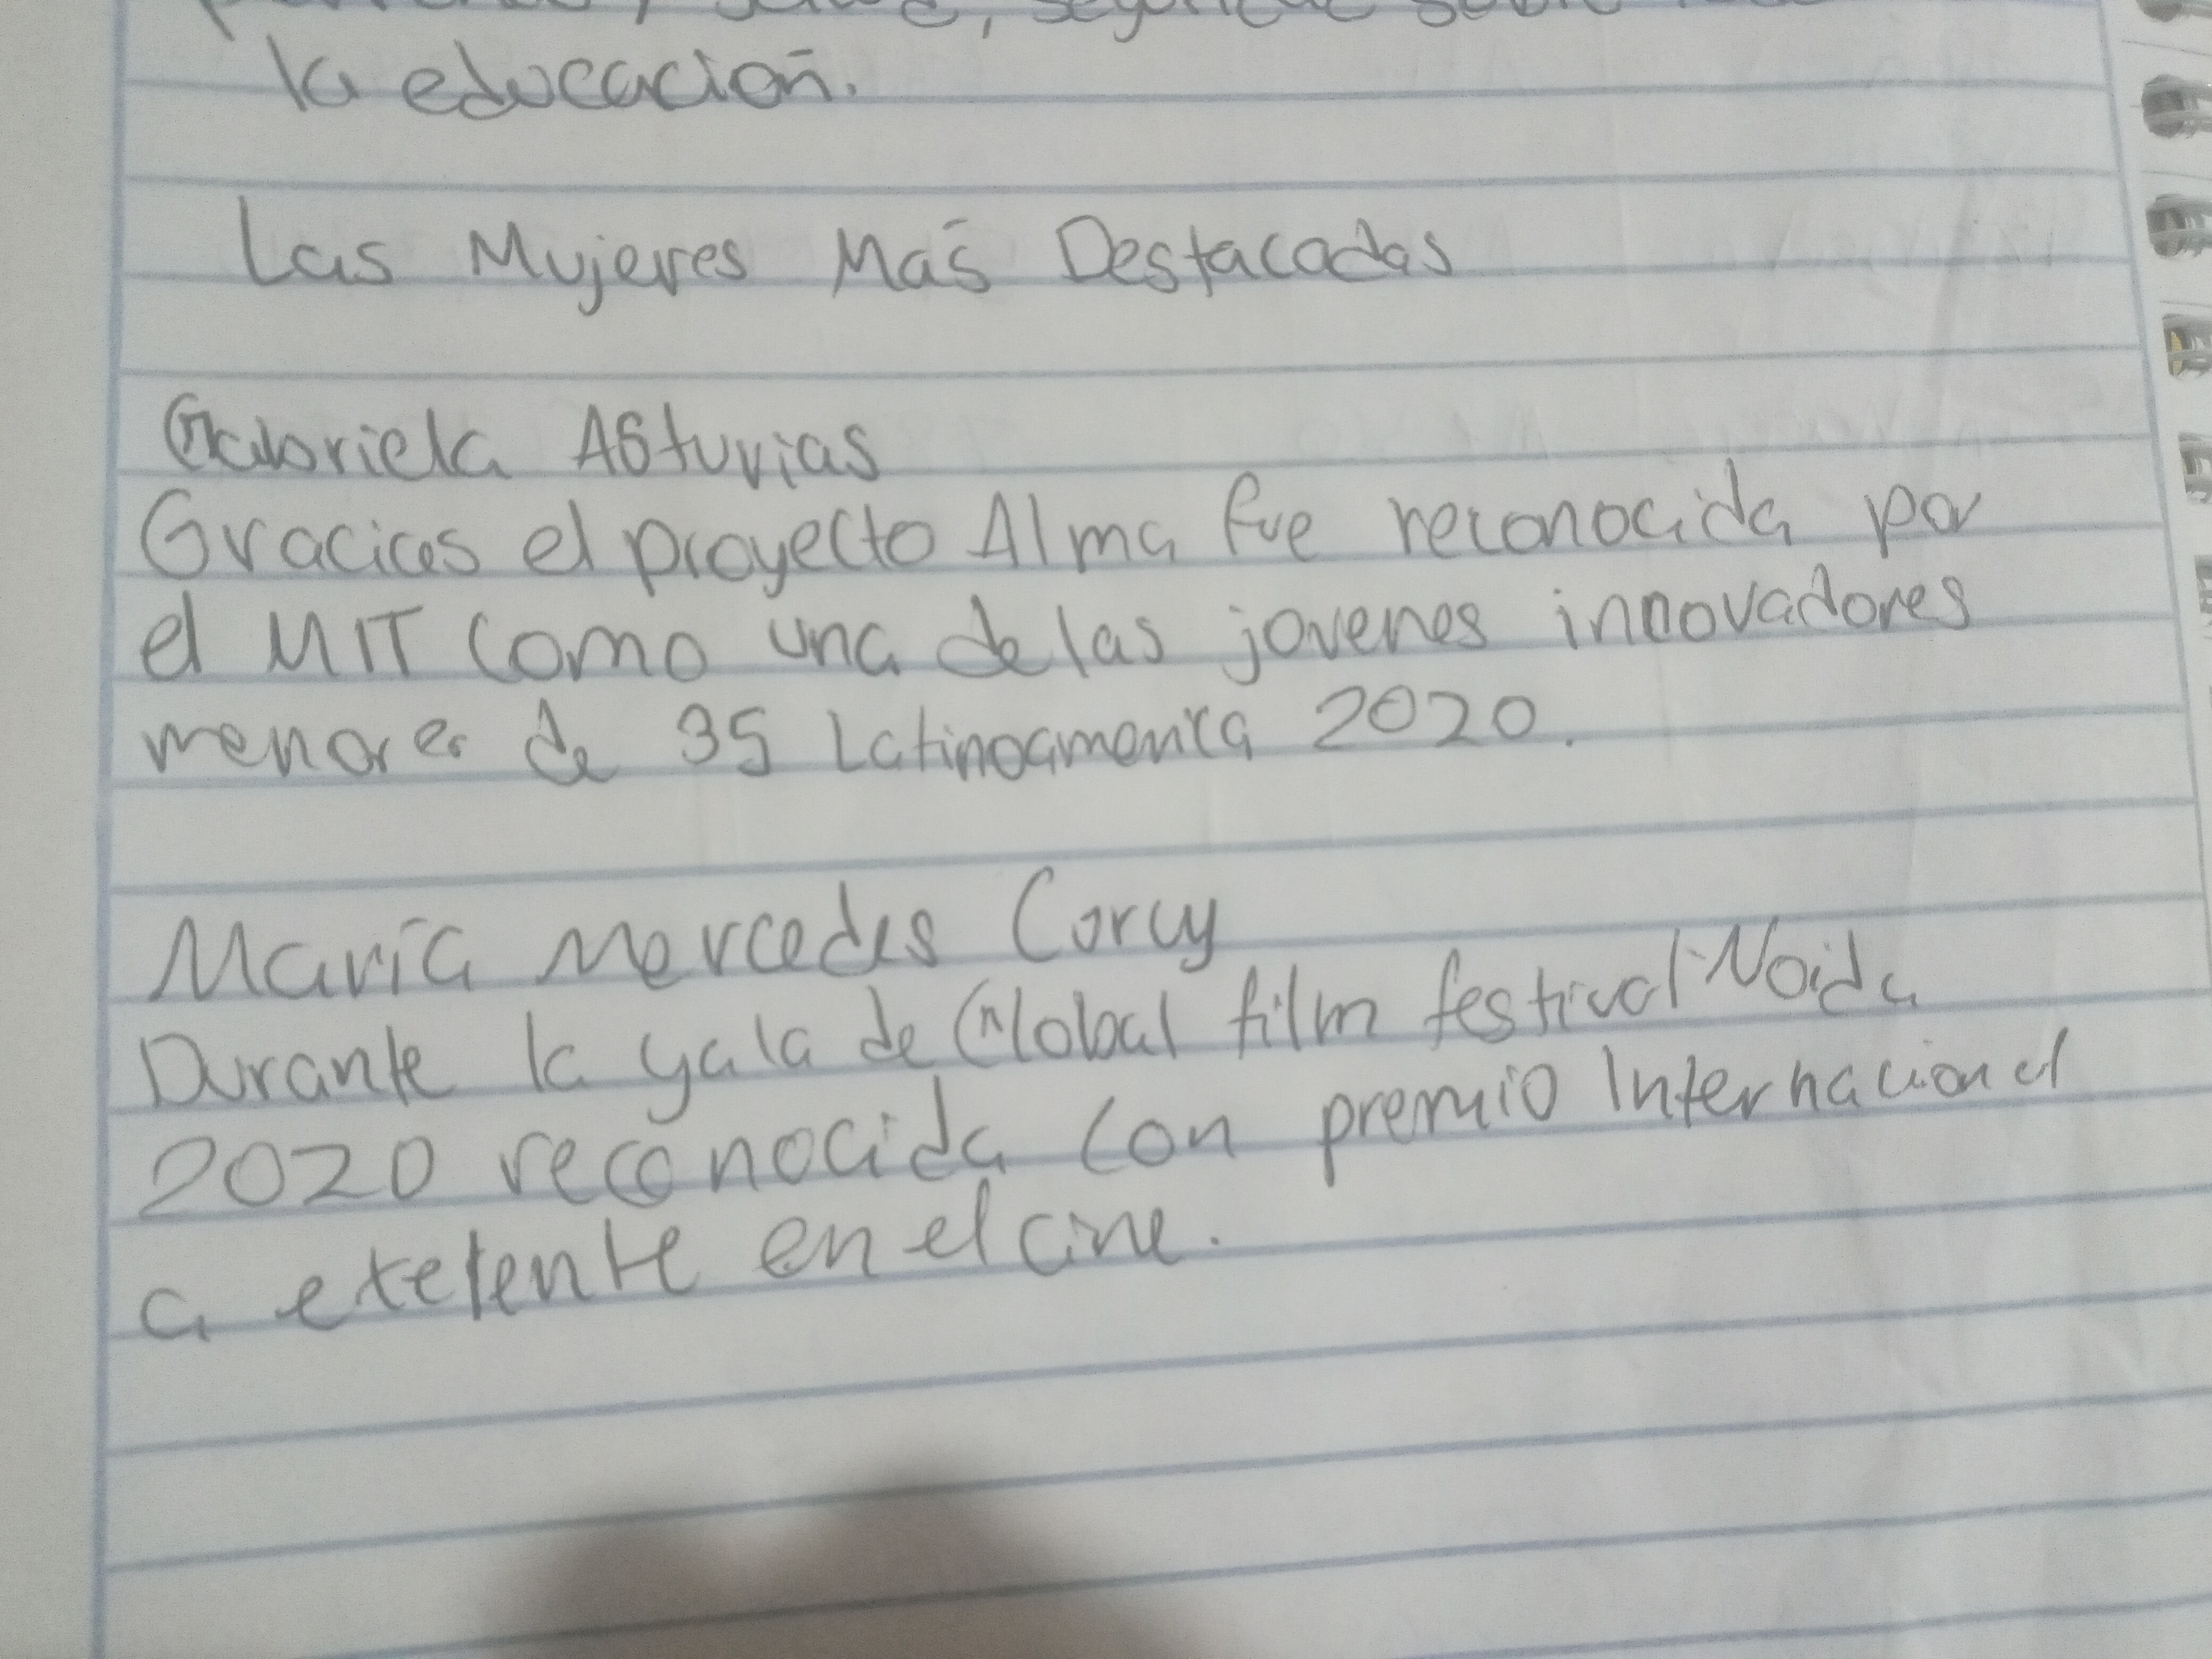 la educación.
Las Mujeres Más Destacadas
Gabriela Asturias
Gracias el proyecto Alma fue reconocida por
el MIT como una de las jovenes innovadores
menores de 35 Latinoamerica 2020.
María Mercedes Coroy
Durante la gala de Global film festival Noida
2020 reconocida con premio Internacional
a exelente en el cine.